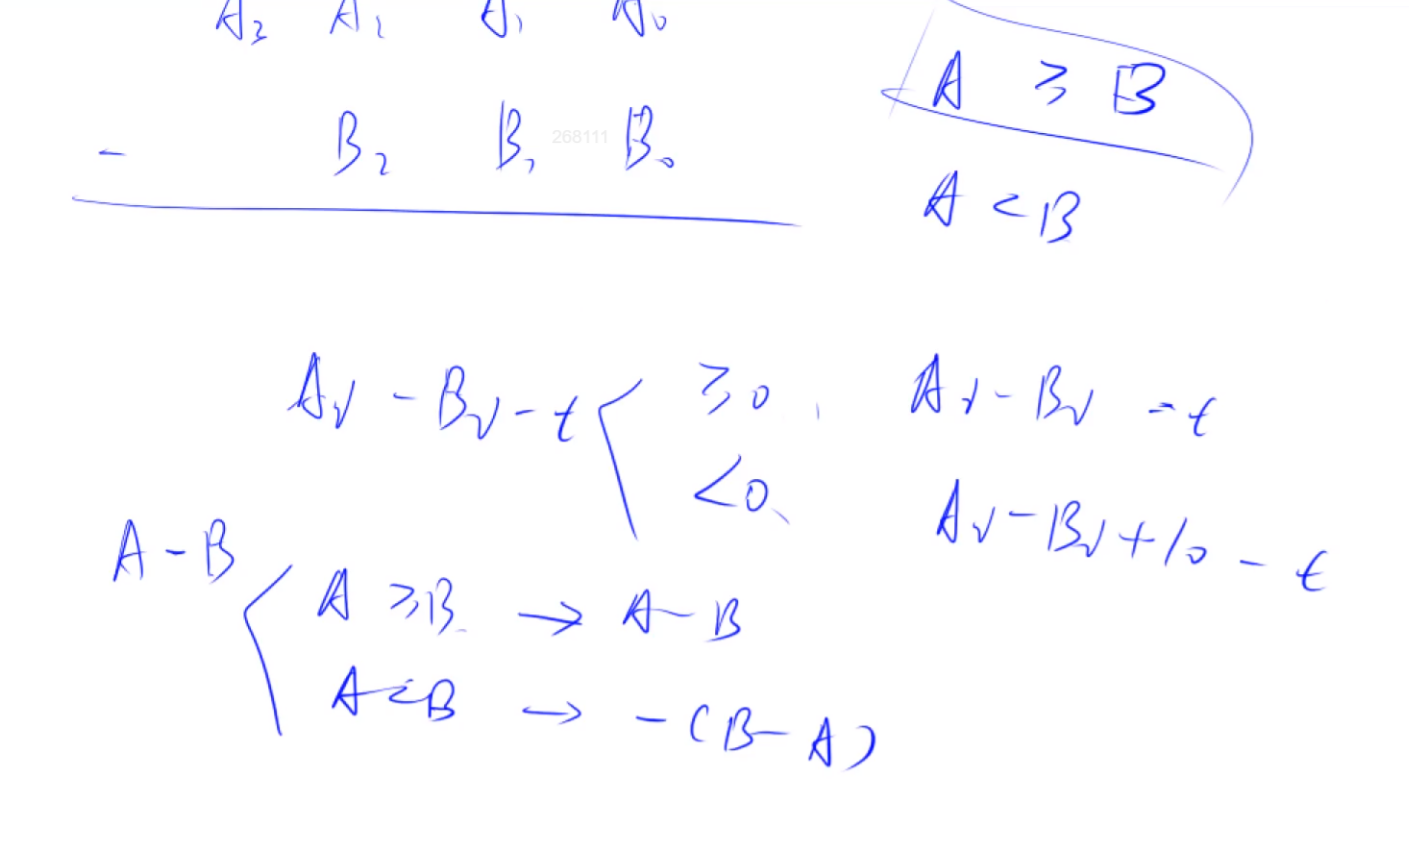 A₃ A₂ A₁ A₀
- B₂ B₁ B₀
268111
A ≥ B
A < B
Aᵢ - Bᵢ - t ≥0, Aᵢ - Bᵢ - t
<0, Aᵢ - Bᵢ + 10 - t
A - B
A ≥ B → A - B
A < B → -(B - A)